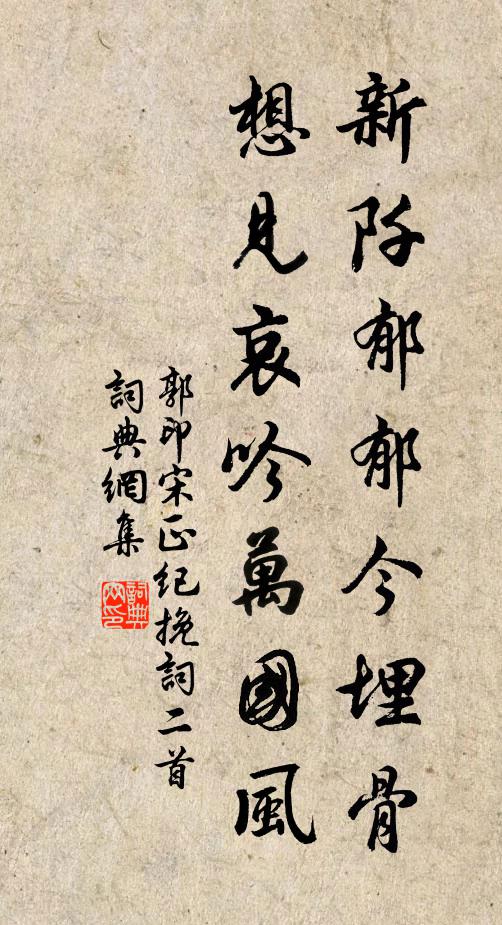 新阡郁郁今埋骨
想見哀吟萬國風
郭印宋正紀挽詞二首
詞典網集
詞典网印